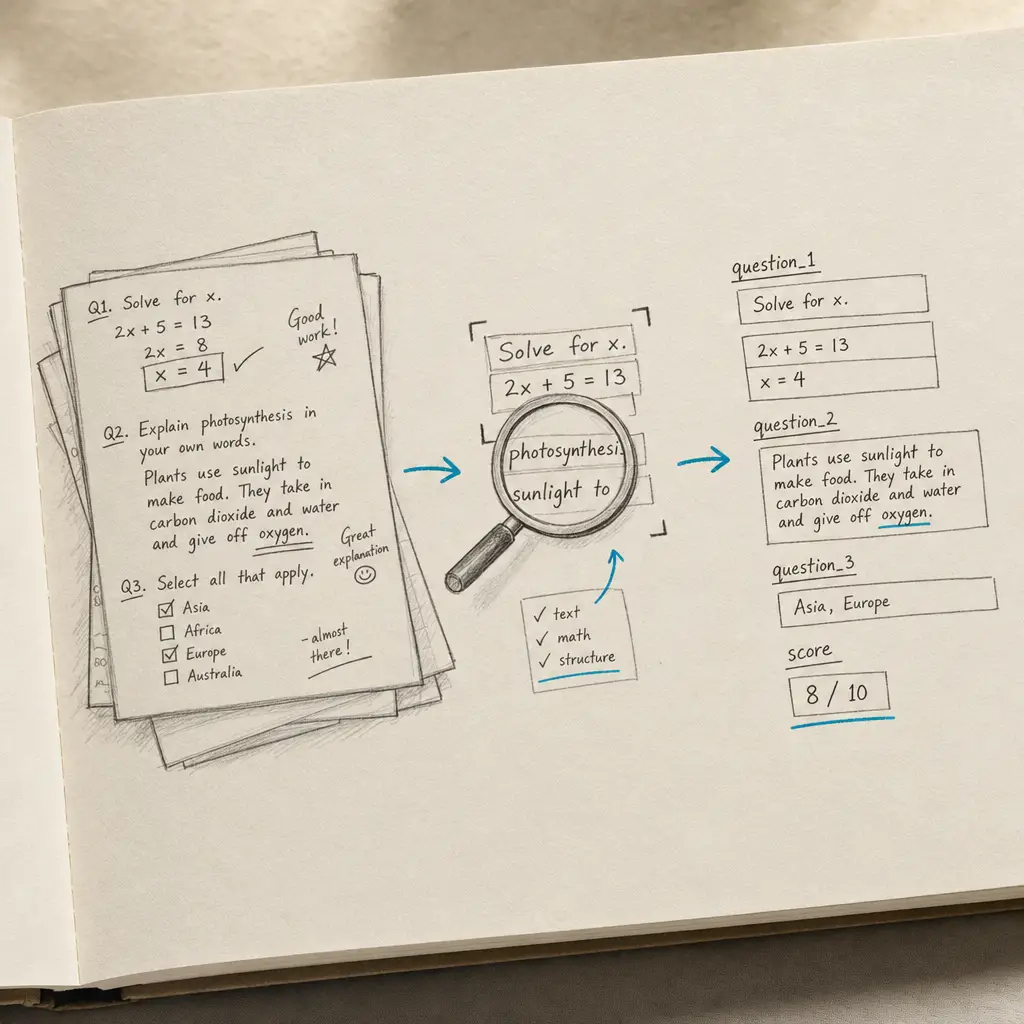 Q1. Solve for x.
2x + 5 = 13
2x = 8
x = 4 ✓
Good
work!
Q2. Explain photosynthesis in
your own words.
Plants use sunlight to
make food. They take in
carbon dioxide and water
and give off oxygen.
Great
explanation
Q3. Select all that apply.
☑ Asia
☐ Africa
☑ Europe
☐ Australia
- almost
there!
Solve for x.
2x + 5 = 13
photosynthesi
sunlight to
✓ text
✓ math
✓ structure
question_1
Solve for x.
2x + 5 = 13
x = 4
question_2
Plants use sunlight to
make food. They take in
carbon dioxide and water
and give off oxygen.
question_3
Asia, Europe
score
8 / 10